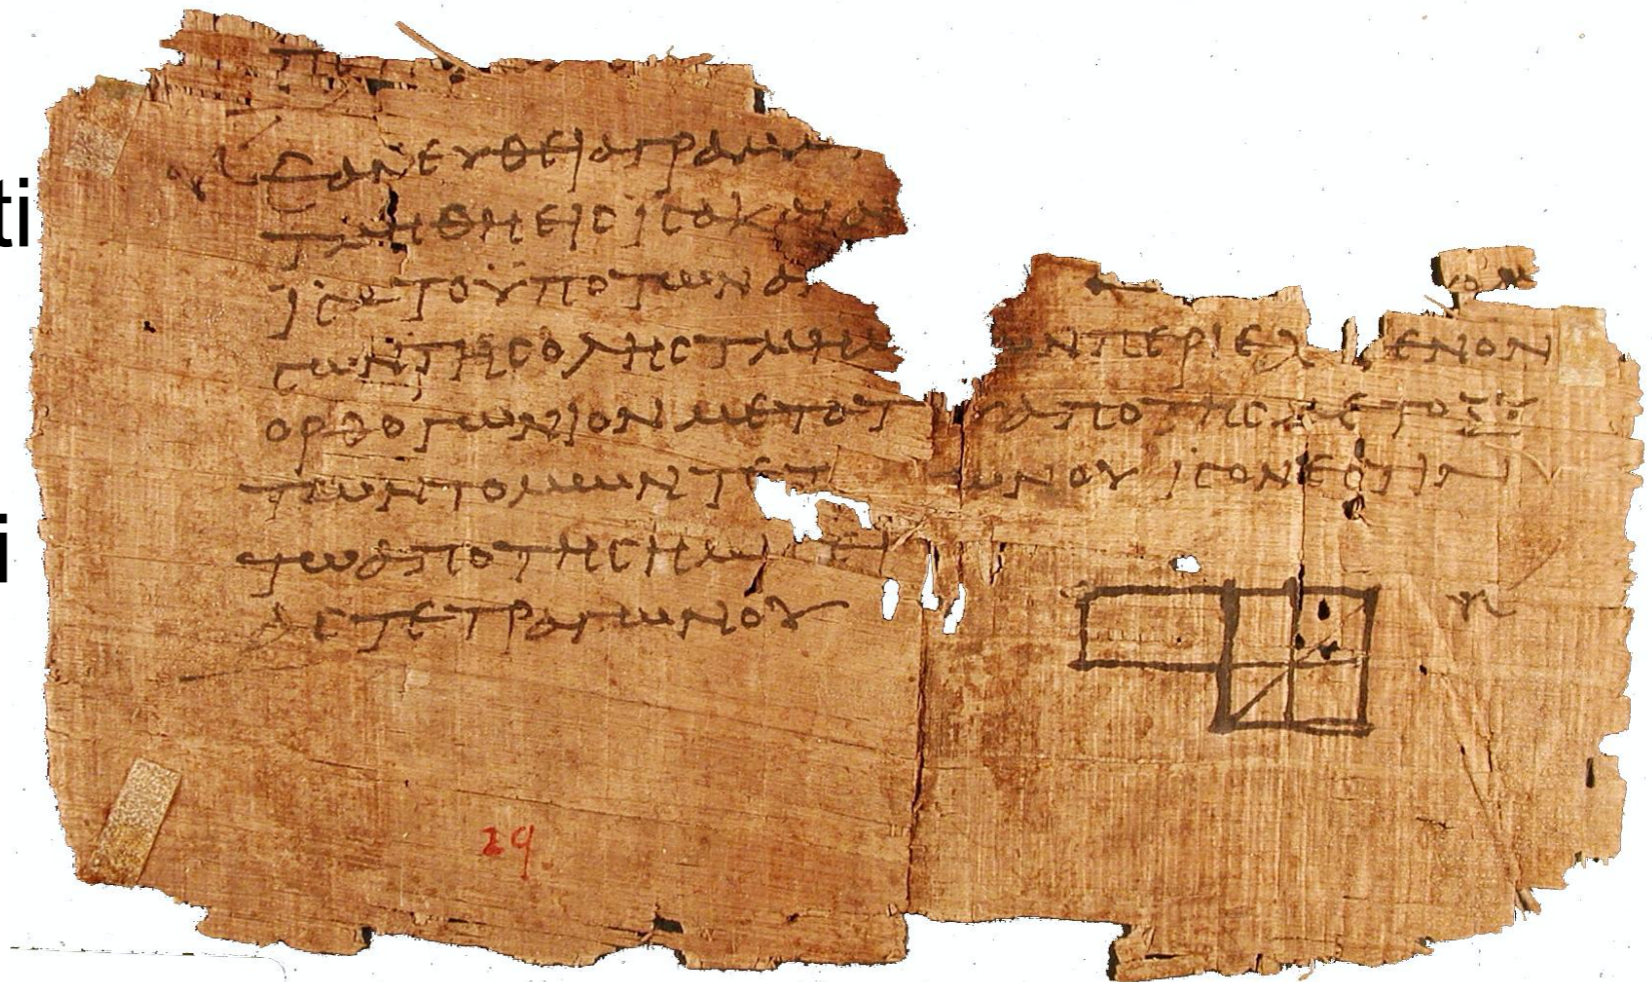 ti
ΕΑΝ ΕΥΘΕΙΑ ΓΡΑΜΜ
ΤΜΗΘΗ ΕΙϹ ΙϹΑ ΚΑΙ Α
ΙϹΑ ΤΟ ΥΠΟ ΤΩΝ ΑΝ
ϹΩΝ ΤΗϹ ΟΛΗϹ ΤΜΗΜ ΩΝ ΠΕΡΙΕΧ ΕΝΟΝ
ΟΡΘΟΓΩΝΙΟΝ ΜΕΤΑ ΤΟΥ ΑΠΟ ΤΗϹ ΜΕΤΟΞΥ
ΤΩΝ ΤΟΜΩΝ ΤΕΤ ΩΝΟΥ ΙϹΟΝ ΕϹΤΙΝ
i
ΤΩ ΑΠΟ ΤΗϹ ΗΜΙϹΕΙ
ΑϹ ΤΕΤΡΑΓΩΝΟΥ
29.